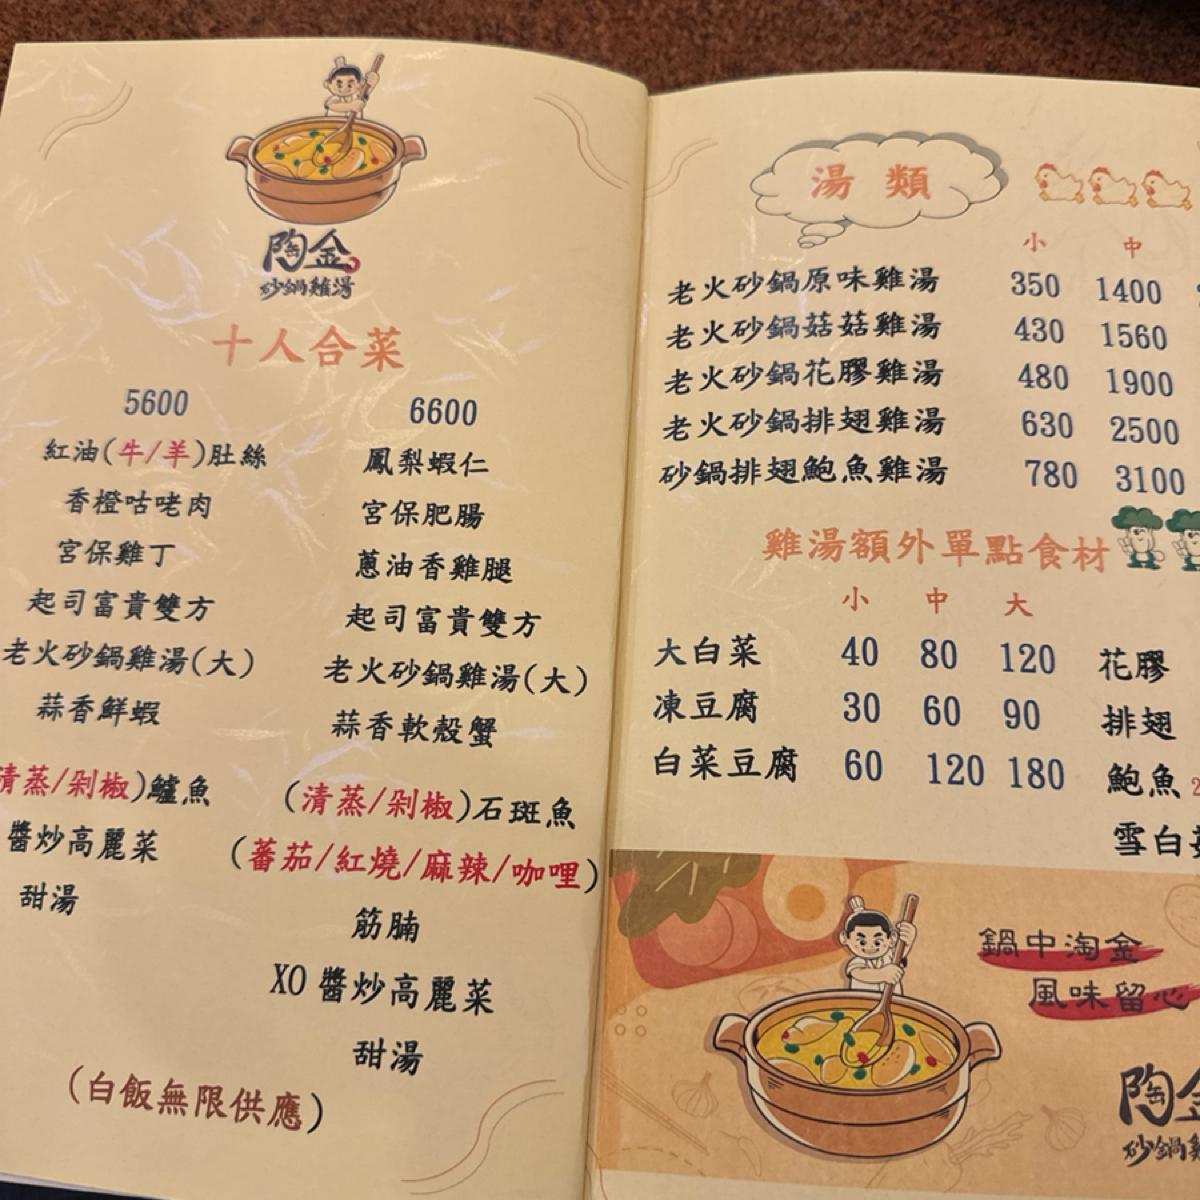 陶金
砂鍋雞湯
十人合菜
5600
紅油(牛/羊)肚絲
香橙咕咾肉
宮保雞丁
起司富貴雙方
老火砂鍋雞湯(大)
蒜香鮮蝦
清蒸/剁椒)鱸魚
醬炒高麗菜
甜湯
6600
鳳梨蝦仁
宮保肥腸
蔥油香雞腿
起司富貴雙方
老火砂鍋雞湯(大)
蒜香軟殼蟹
(清蒸/剁椒)石斑魚
(蕃茄/紅燒/麻辣/咖哩)
筋腩
XO醬炒高麗菜
甜湯
(白飯無限供應)
湯類
小 中
老火砂鍋原味雞湯 350 1400
老火砂鍋菇菇雞湯 430 1560
老火砂鍋花膠雞湯 480 1900
老火砂鍋排翅雞湯 630 2500
砂鍋排翅鮑魚雞湯 780 3100
雞湯額外單點食材
小 中 大
大白菜 40 80 120 花膠
凍豆腐 30 60 90 排翅
白菜豆腐 60 120 180 鮑魚
雪白
鍋中淘金
風味留心
陶金
砂鍋雞